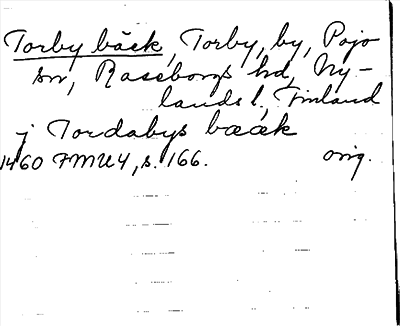 Torby bäck, Torby, by, Pojo
sn, Raseborgs hd, Ny-
lands l., Finland
j Tordabys bææk
1460 FMU4, s. 166. orig.